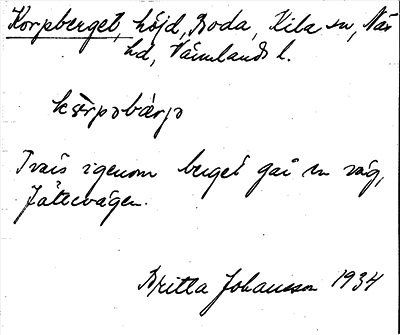 Korpberget, höjd, Boda, Kila sn, Näs
hd, Värmlands l.
kɷ̀rpəbærjə
Tvärs igenom berget går en väg,
Jättevägen.
Britta Johansson 1934